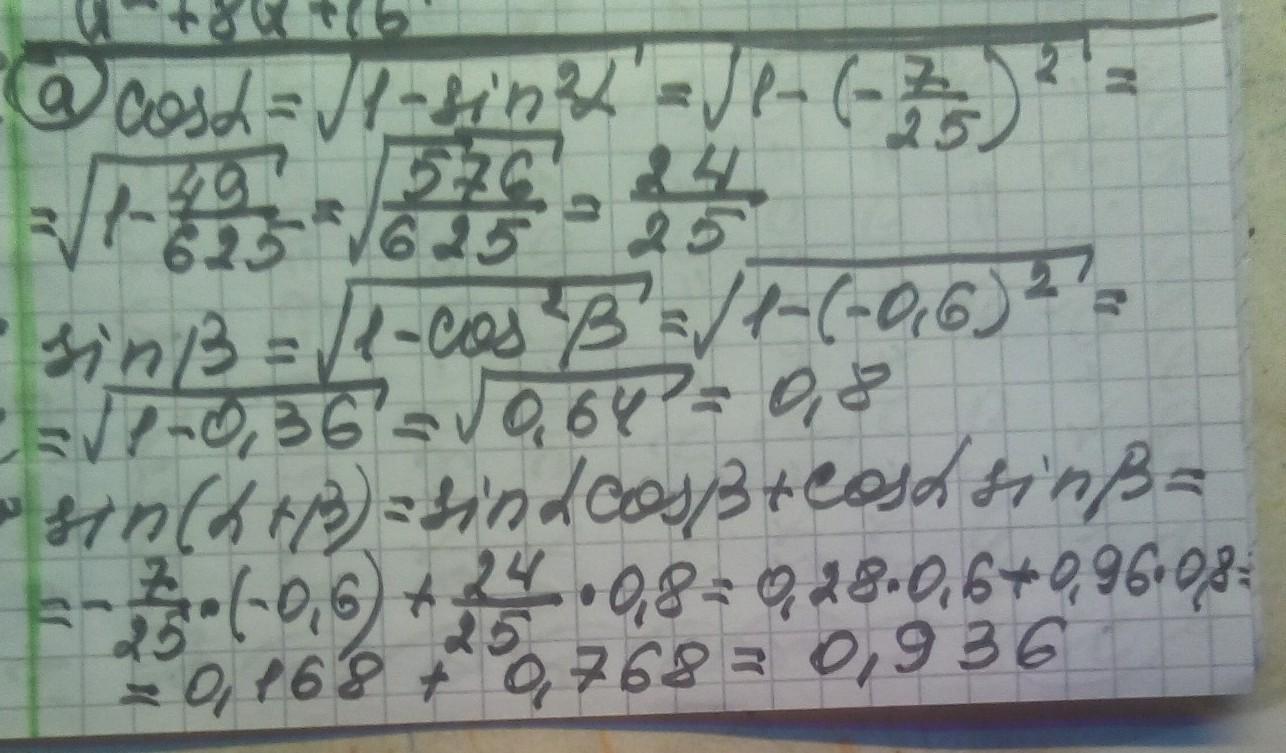 a² + 8a + 16
а) cosα = √(1 - sin²α) = √(1 - (-7/25)²) =
= √(1 - 49/625) = √(576/625) = 24/25
sinβ = √(1 - cos²β) = √(1 - (-0,6)²) =
= √(1 - 0,36) = √(0,64) = 0,8
sin(α+β) = sinα cosβ + cosα sinβ =
= - 7/25 · (-0,6) + 24/25 · 0,8 = 0,28 · 0,6 + 0,96 · 0,8 =
= 0,168 + 0,768 = 0,936